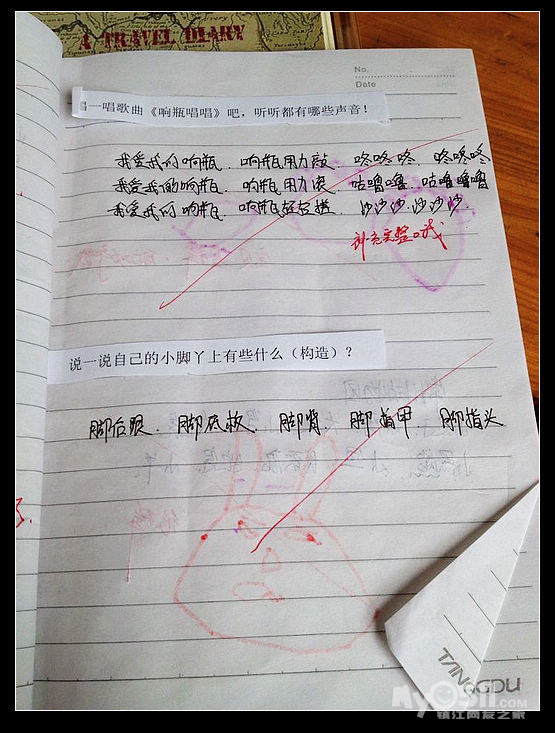 A TRAVEL DIARY
No.
Date
唱一唱歌曲《响瓶唱唱》吧，听听都有哪些声音！
我爱我的响瓶、响瓶用力敲、咚咚咚、咚咚咚
我爱我的响瓶、响瓶用力滚、咕噜噜、咕噜噜噜
我爱我的响瓶、响瓶轻轻摇、沙沙沙、沙沙沙、
补充完整哦
说一说自己的小脚丫上有些什么（构造）？
脚后跟、脚底板、脚背、脚指甲、脚指头
TANGDU
MyOSii.com
镇江网友之家